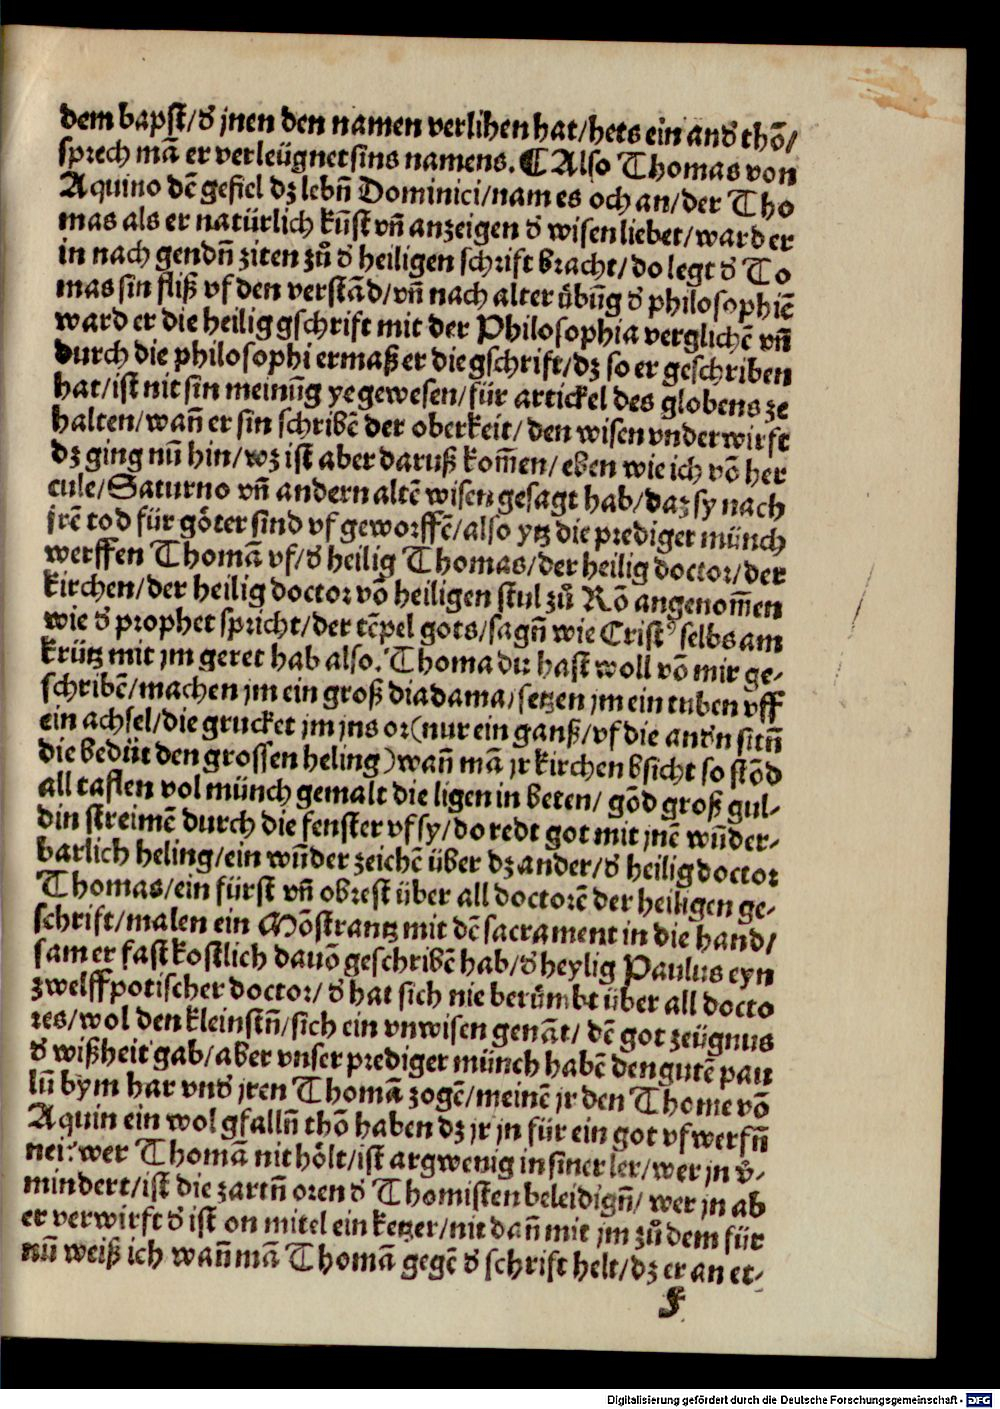 dem bapst/ď jnen den namen verlihen hat/hets ein andď thõ/
sprech mã er verleügnet sins namens. ⸿ Also Thomas von
Aquino dẽ gefiel dz lebñ Dominici/nam es och an/der Tho
mas als er natürlich kũst vñ anzeigen ď wisen liebet/ward er
in nach gendñ ziten zů ď heiligen schrift bracht/do legt ď To
mas sin fliß vf den verstãd/vñ nach alter ůbũg ď philosophiẽ
ward er die heilig gschrift mit der Philosophia verglichẽ vñ
durch die philosophi ermaß er die gschrift/dz so er geschriben
hat/ist nit sin meinũg ye gewesen/für artickel des globens ze
halten/wañ er sin schribẽ der oberkeit/den wisen vnderwirft
dz ging nũ hin/wz ist aber daruß kom̃en/eben wie ich võ her
cule/Saturno vñ andern altẽ wisen gesagt hab/daz sy nach
jrẽ tod für göter sind vf geworffẽ/also ytz die prediger münch
werffen Thomã vf/ď heilig Thomas/der heilig doctor/der
kirchen/der heilig doctor võ heiligen stul zů Rõ angenom̃en
wie ď prophet spricht/der tẽpel gots/sagñ wie Cristꝰ selbs am
krütz mit jm geret hab also. Thoma du hast woll võ mir ge-
schribẽ/machen jm ein groß diadama/setzen jm ein tuben vff
ein achsel/die grucket jm jns or(nur ein ganß/vf die andďn sitñ
die bedüt den grossen heling)wañ mã jr kirchen bsicht so stõd
all taflen vol münch gemalt die ligen in beten/ gõd groß gul-
din streimẽ durch die fenster vf sy/do redt got mit jnẽ wũder-
barlich heling/ein wũder zeichẽ über dz ander/ď heilig doctor
Thomas/ein fürst vñ obrest über all doctorẽ der heiligen ge-
schrift/malen ein Mõstrantz mit dẽ sacrament in die hand/
sam er fast kostlich davõ geschribẽ hab/ď heylig Paulus eyn
zwelffpotischer doctor/ď hat sich nie berůmbt über all docto
res/wol den kleinstñ/sich ein vnwisen genãt/ dẽ got zeügnus
ď wißheit gab/aber vnser prediger münch habẽ den gutẽ pau
lũ bym har vndď jren Thomã zogẽ/meinẽ jr den Thome võ
Aquin ein wol gfallñ thõ haben dz jr jn für ein got vfwerfñ
nei? wer Thomã nit hölt/ist argwenig in siner ler/wer jn v̈-
mindert/ist die zartñ oren ď Thomisten beleidigñ/ wer jn ab
er verwirft ď ist on mitel ein ketzer/nit dañ mit jm zů dem für
nũ weiß ich wañ mã Thomã gegẽ ď schrift helt/dz er an et-
f
Digitalisierung gefördert durch die Deutsche Forschungsgemeinschaft - DFG